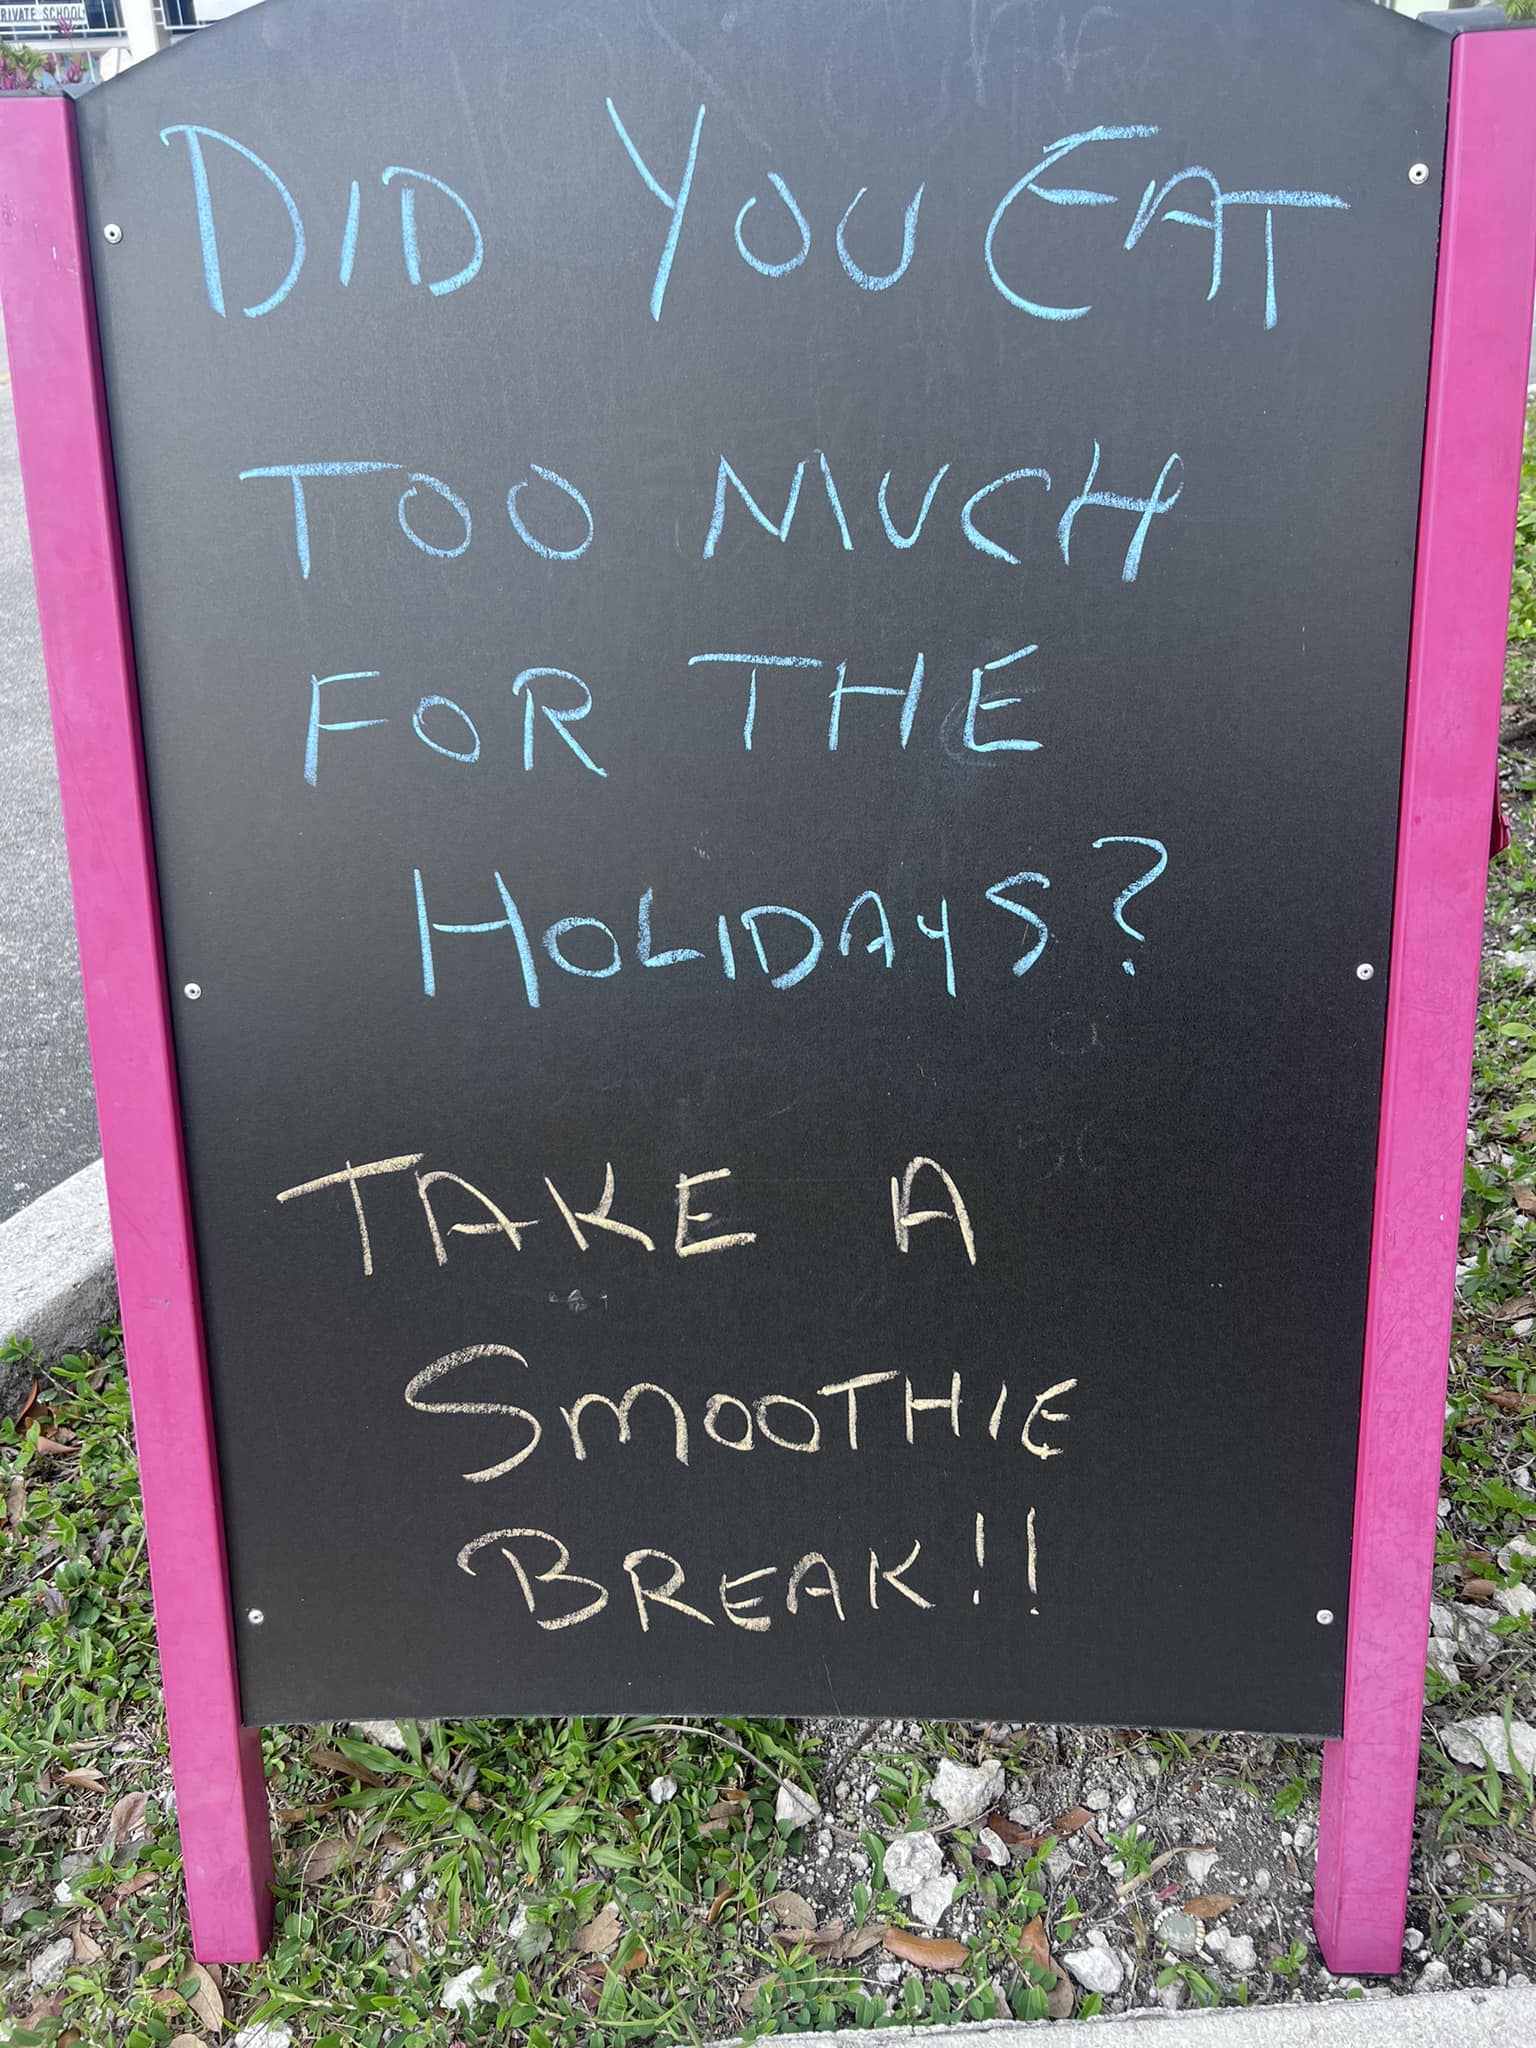 RIVATE SCHOOL
DID YOU EAT
TOO MUCH
FOR THE
HOLIDAYS?
TAKE A
SMOOTHIE
BREAK!!